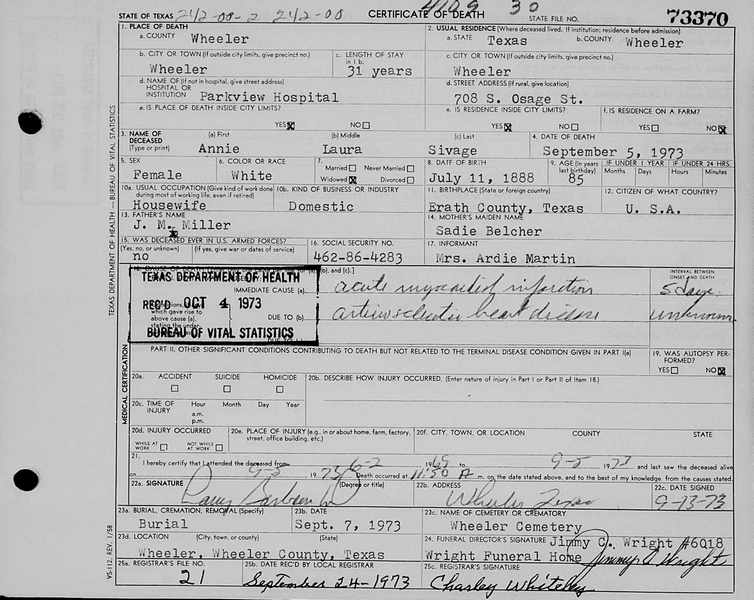 STATE OF TEXAS 242-00-2 242-00 CERTIFICATE OF DEATH 4109 30 STATE FILE NO. 73370
1. PLACE OF DEATH
a. COUNTY Wheeler
2. USUAL RESIDENCE (Where deceased lived. If institution: residence before admission)
a. STATE Texas b. COUNTY Wheeler
b. CITY OR TOWN (If outside city limits, give precinct no.) Wheeler
c. LENGTH OF STAY in 1 b. 31 years
c. CITY OR TOWN (If outside city limits, give precinct no.) Wheeler
d. NAME OF (If not in hospital, give street address) HOSPITAL OR INSTITUTION Parkview Hospital
d. STREET ADDRESS (If rural, give location) 708 S. Osage St.
e. IS PLACE OF DEATH INSIDE CITY LIMITS?
YES☒ NO☐
e. IS RESIDENCE INSIDE CITY LIMITS?
YES☒ NO☐
f. IS RESIDENCE ON A FARM?
YES☐ NO☒
3. NAME OF DECEASED (Type or print)
(a) First Annie (b) Middle Laura (c) Last Sivage
4. DATE OF DEATH September 5, 1973
5. SEX Female
6. COLOR OR RACE White
7. Married☐ Never Married☐
Widowed☒ Divorced☐
8. DATE OF BIRTH July 11, 1888
9. AGE (In years last birthday) 85
IF UNDER 1 YEAR Months Days
IF UNDER 24 HRS. Hours Minutes
10a. USUAL OCCUPATION (Give kind of work done during most of working life, even if retired) Housewife
10b. KIND OF BUSINESS OR INDUSTRY Domestic
11. BIRTHPLACE (State or foreign country) Erath County, Texas
12. CITIZEN OF WHAT COUNTRY? U. S.A.
13. FATHER'S NAME J. M. Miller
14. MOTHER'S MAIDEN NAME Sadie Belcher
15. WAS DECEASED EVER IN U.S. ARMED FORCES?
(Yes, no, or unknown) (If yes, give war or dates of service)
no
16. SOCIAL SECURITY NO. 462-86-4283
17. INFORMANT Mrs. Ardie Martin
TEXAS DEPARTMENT OF HEALTH
REC'D OCT 4 1973
BUREAU OF VITAL STATISTICS
IMMEDIATE CAUSE (a) acute myocardial infarction
DUE TO (b) arteriosclerotic heart disease
INTERVAL BETWEEN ONSET AND DEATH
5 days
unknown
PART II. OTHER SIGNIFICANT CONDITIONS CONTRIBUTING TO DEATH BUT NOT RELATED TO THE TERMINAL DISEASE CONDITION GIVEN IN PART I(a)
19. WAS AUTOPSY PERFORMED?
YES☐ NO☒
20a. ACCIDENT ☐ SUICIDE ☐ HOMICIDE ☐
20b. DESCRIBE HOW INJURY OCCURRED. (Enter nature of injury in Part I or Part II of Item 18.)
20c. TIME OF INJURY Hour Month Day Year
a.m.
p.m.
20d. INJURY OCCURRED
WHILE AT WORK ☐ NOT WHILE AT WORK ☐
20e. PLACE OF INJURY (e.g., in or about home, farm, factory, street, office building, etc.)
20f. CITY, TOWN, OR LOCATION COUNTY STATE
21. I hereby certify that I attended the deceased from 6-2 1965 to 9-5 1973 and last saw the deceased alive
on 9-5 1973 Death occurred at 11:50 A m. on the date stated above, and to the best of my knowledge, from the causes stated.
22a. SIGNATURE (Degree or title)
22b. ADDRESS Wheeler Texas
22c. DATE SIGNED 9-13-73
23a. BURIAL, CREMATION, REMOVAL (Specify) Burial
23b. DATE Sept. 7, 1973
23c. NAME OF CEMETERY OR CREMATORY Wheeler Cemetery
23d. LOCATION (City, town, or county) (State) Wheeler, Wheeler County, Texas
24. FUNERAL DIRECTOR'S SIGNATURE Jimmy C. Wright #6018
Wright Funeral Home Jimmy C Wright
25a. REGISTRAR'S FILE NO. 21
25b. DATE REC'D BY LOCAL REGISTRAR September 24-1973
25c. REGISTRAR'S SIGNATURE Charley Whiteley
TEXAS DEPARTMENT OF HEALTH — BUREAU OF VITAL STATISTICS
MEDICAL CERTIFICATION
VS-112, REV. 1/58